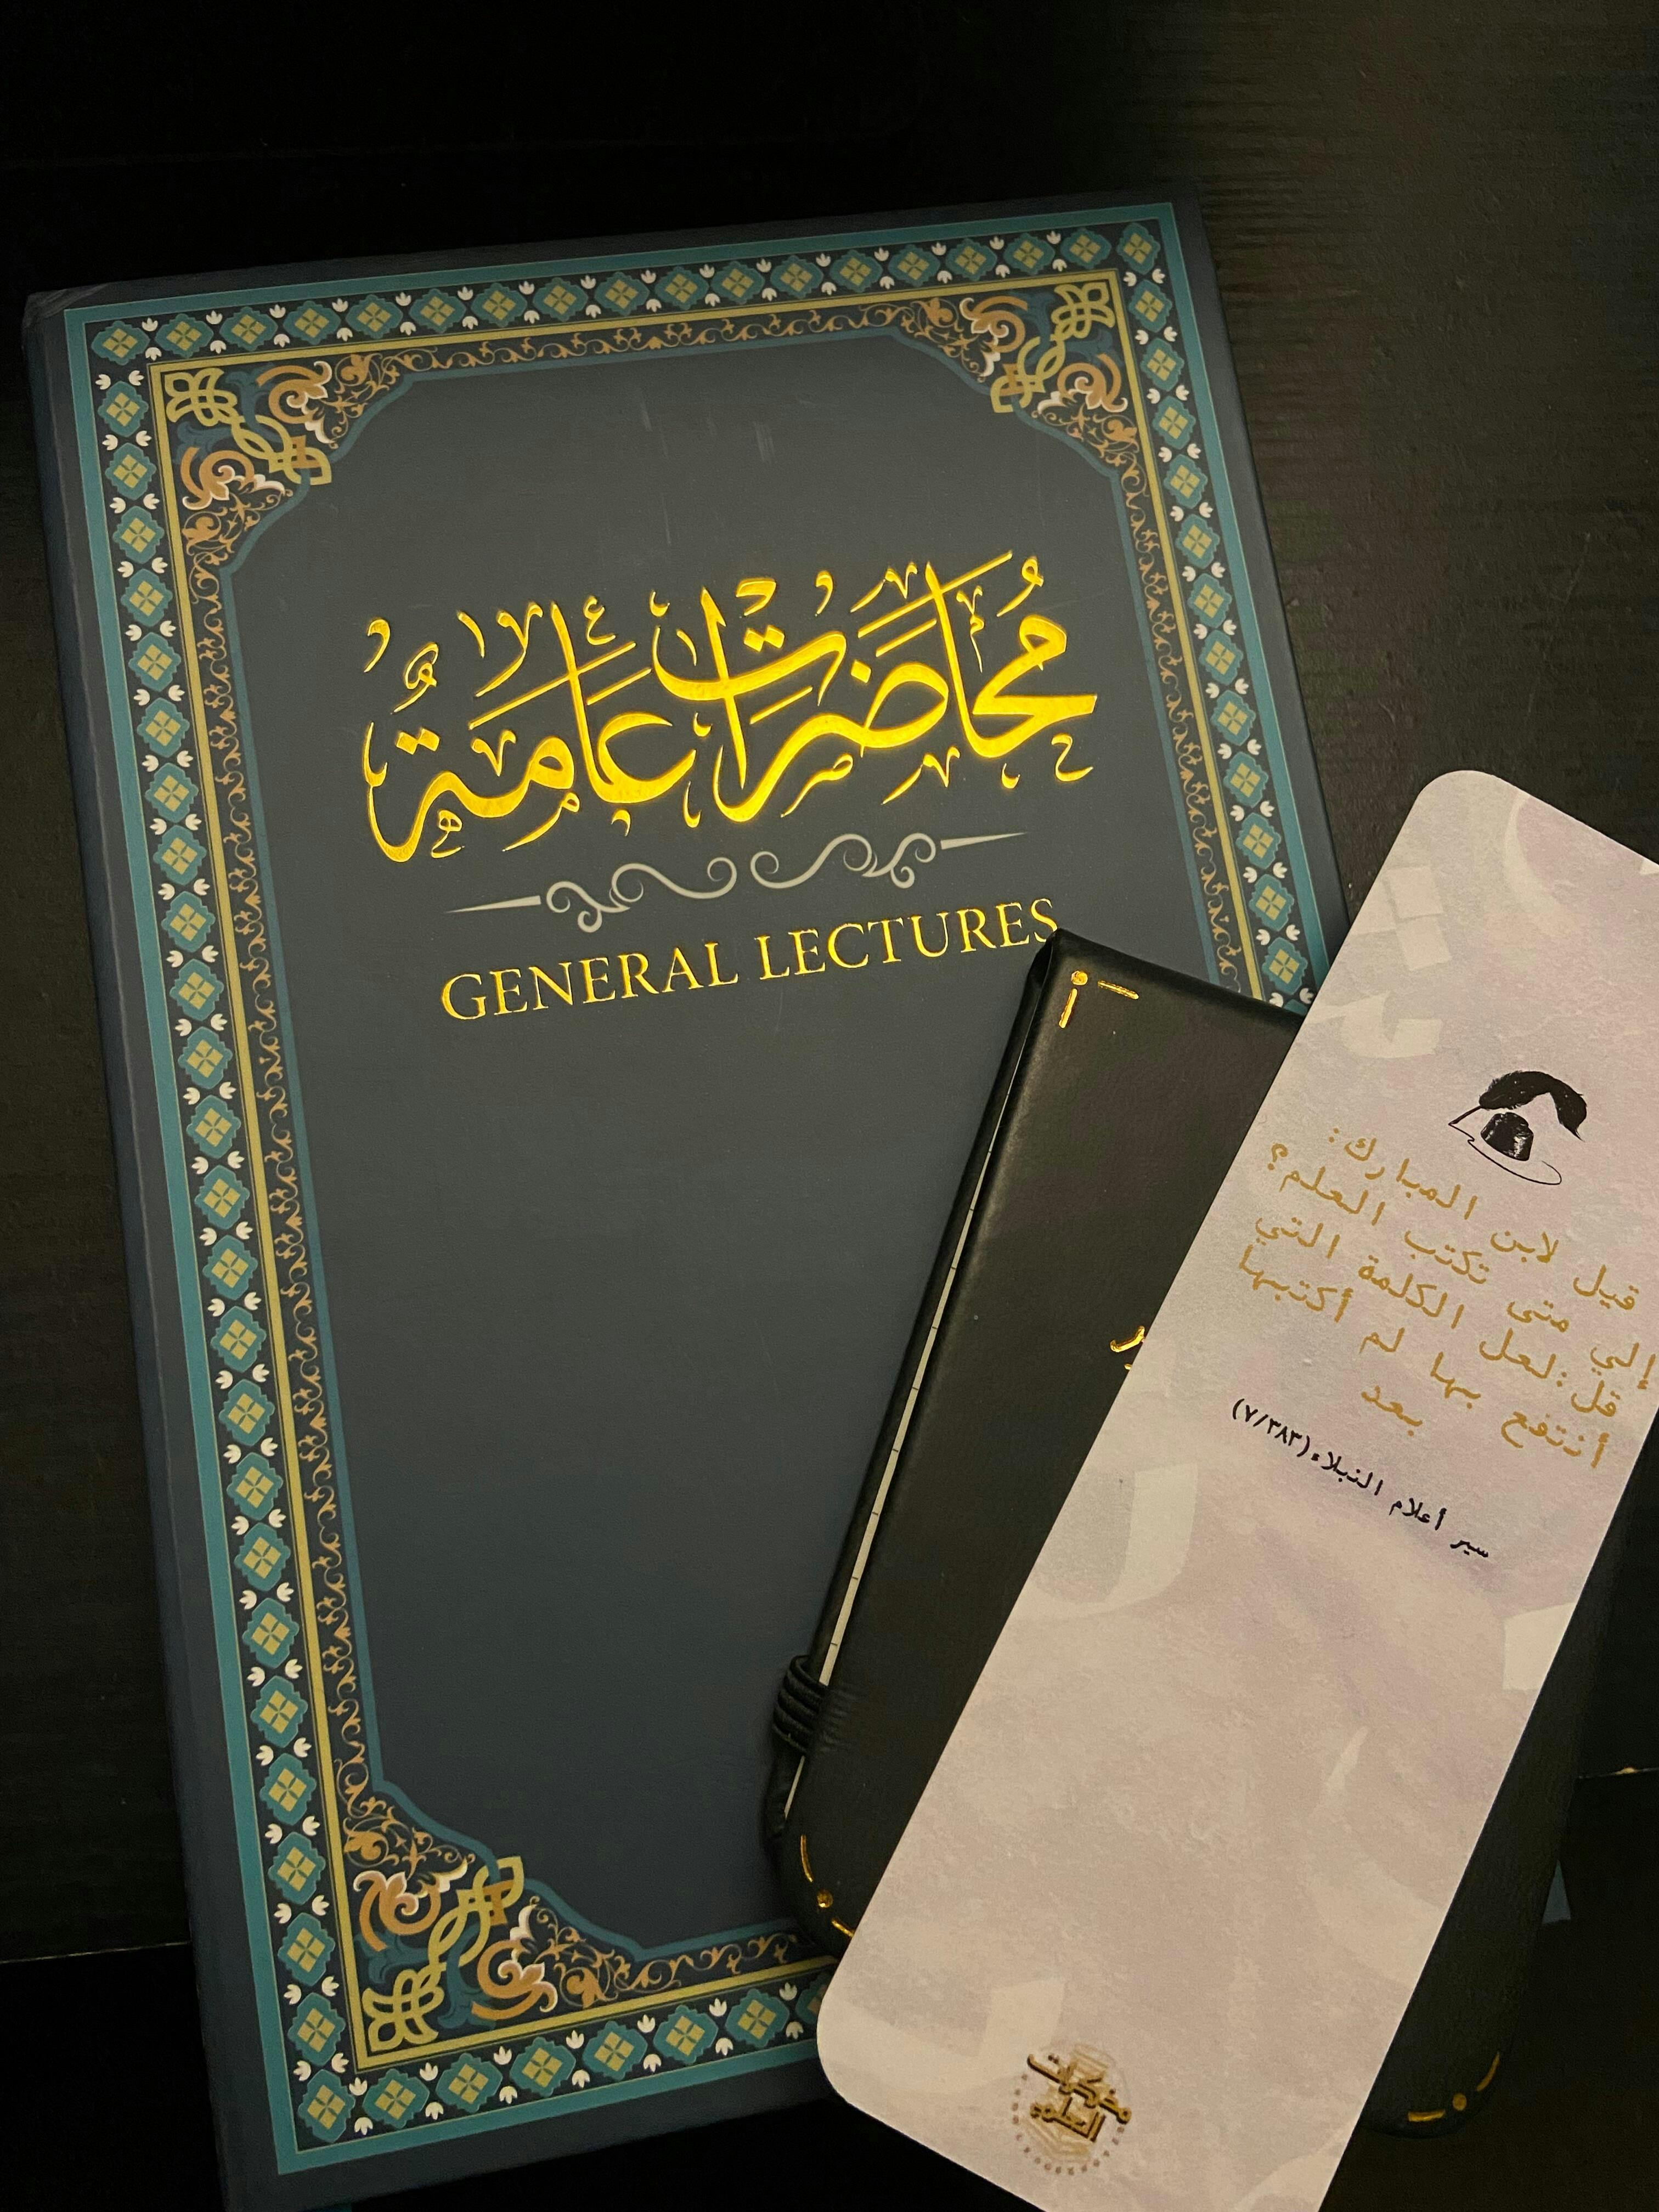 مُحَاضَرَاتٌ عَامَّةٌ
GENERAL LECTURES
قيل لابن المبارك:
إلي متى تكتب العلم؟
قل:لعل الكلمة التي
أنتفع بها لم أكتبها
بعد
سير أعلام النبلاء(٧/٣٨٣)
مذكرات
العلم